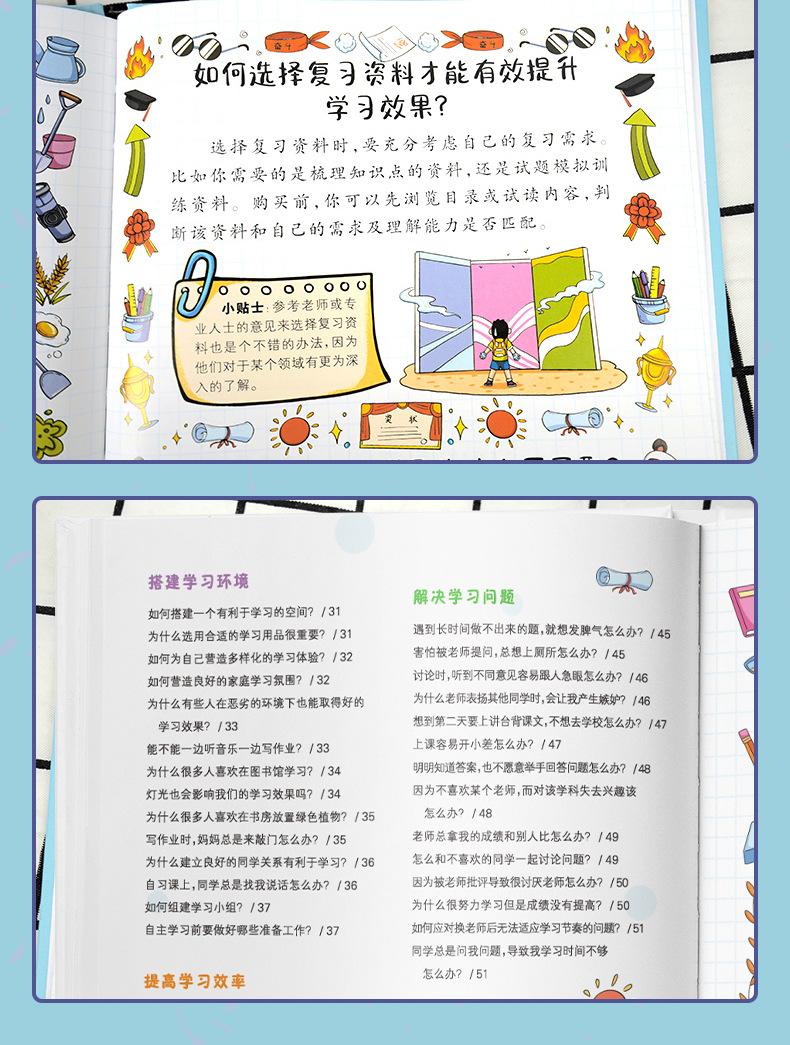 奋斗
奋斗
如何选择复习资料才能有效提升
学习效果?
选择复习资料时,要充分考虑自己的复习需求。
比如你需要的是梳理知识点的资料,还是试题模拟训
练资料。购买前,你可以先浏览目录或试读内容,判
断该资料和自己的需求及理解能力是否匹配。
小贴士:参考老师或专
业人士的意见来选择复习资
料也是个不错的办法,因为
他们对于某个领域有更为深
入的了解。
奖状
搭建学习环境
如何搭建一个有利于学习的空间? /31
为什么选用合适的学习用品很重要? /31
如何为自己营造多样化的学习体验? /32
如何营造良好的家庭学习氛围? /32
为什么有些人在恶劣的环境下也能取得好的
学习效果? /33
能不能一边听音乐一边写作业? /33
为什么很多人喜欢在图书馆学习? /34
灯光也会影响我们的学习效果吗? /34
为什么很多人喜欢在书房放置绿色植物? /35
写作业时,妈妈总是来敲门怎么办? /35
为什么建立良好的同学关系有利于学习? /36
自习课上,同学总是找我说话怎么办? /36
如何组建学习小组? /37
自主学习前要做好哪些准备工作? /37
提高学习效率
解决学习问题
遇到长时间做不出来的题,就想发脾气怎么办? /45
害怕被老师提问,总想上厕所怎么办? /45
讨论时,听到不同意见容易跟人急眼怎么办? /46
为什么老师表扬其他同学时,会让我产生嫉妒? /46
想到第二天要上讲台背课文,不想去学校怎么办? /47
上课容易开小差怎么办? /47
明明知道答案,也不愿意举手回答问题怎么办? /48
因为不喜欢某个老师,而对该学科失去兴趣该
怎么办? /48
老师总拿我的成绩和别人比怎么办? /49
怎么和不喜欢的同学一起讨论问题? /49
因为被老师批评导致很讨厌老师怎么办? /50
为什么很努力学习但是成绩没有提高? /50
如何应对换老师后无法适应学习节奏的问题? /51
同学总是问我问题,导致我学习时间不够
怎么办? /51